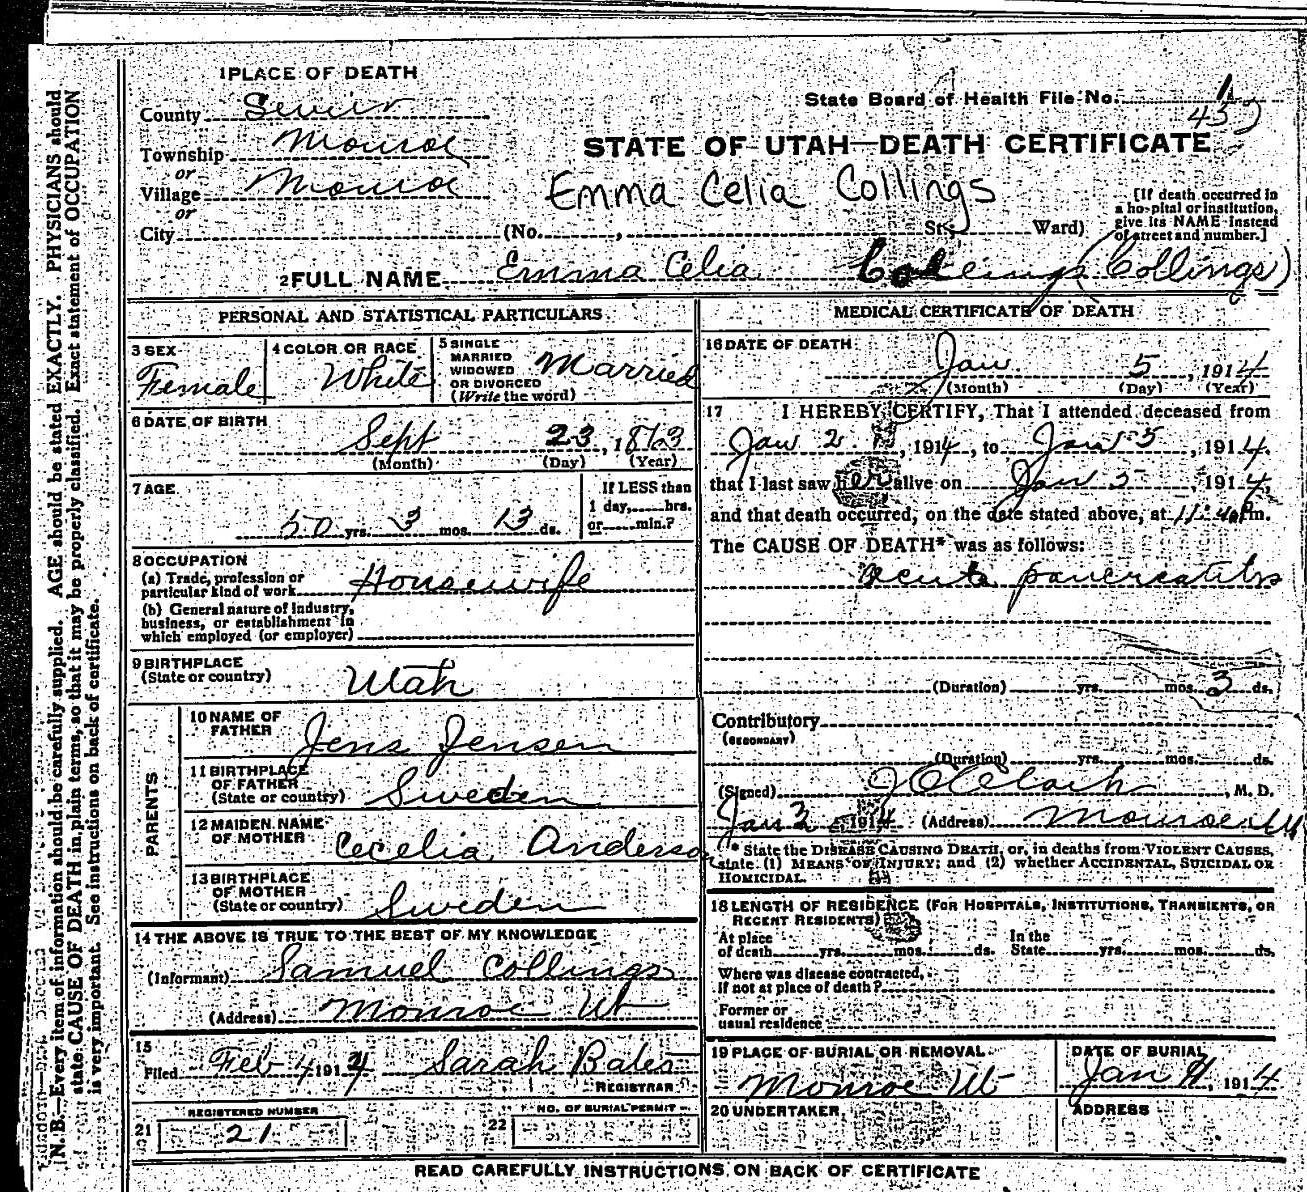 1 PLACE OF DEATH
County Sevier
Township Monroe
or
Village Monroe
or
City (No. , St. Ward)
State Board of Health File No. 1
43
STATE OF UTAH—DEATH CERTIFICATE
Emma Celia Collings
[If death occurred in a hospital or institution, give its NAME instead of street and number.]
2 FULL NAME Emma Celia (Collings)
PERSONAL AND STATISTICAL PARTICULARS
3 SEX Female
4 COLOR OR RACE White
5 SINGLE MARRIED WIDOWED OR DIVORCED (Write the word) Married
6 DATE OF BIRTH
Sept 23, 1863
(Month) (Day) (Year)
7 AGE
50 yrs. 3 mos. 13 ds.
If LESS than 1 day, hrs. or min.?
8 OCCUPATION
(a) Trade, profession or particular kind of work Housewife
(b) General nature of industry, business, or establishment in which employed (or employer)
9 BIRTHPLACE (State or country) Utah
PARENTS
10 NAME OF FATHER Jens Jensen
11 BIRTHPLACE OF FATHER (State or country) Sweden
12 MAIDEN NAME OF MOTHER Cecelia Anderson
13 BIRTHPLACE OF MOTHER (State or country) Sweden
14 THE ABOVE IS TRUE TO THE BEST OF MY KNOWLEDGE
(Informant) Samuel Collings
(Address) Monroe Ut
15
Filed Feb 4 1914 Sarah Bates
REGISTRAR
REGISTERED NUMBER
21 21
NO. OF BURIAL PERMIT
22
MEDICAL CERTIFICATE OF DEATH
16 DATE OF DEATH
Jan 5, 1914
(Month) (Day) (Year)
17 I HEREBY CERTIFY, That I attended deceased from
Jan 2, 1914, to Jan 5, 1914.
that I last saw her alive on Jan 5, 1914,
and that death occurred, on the date stated above, at 11:40 Pm.
The CAUSE OF DEATH* was as follows:
acute pancreatitis
(Duration) yrs. mos. 3 ds.
Contributory
(SECONDARY)
(Duration) yrs. mos. ds.
(Signed) , M. D.
Jan 1914 (Address) Monroe Ut
* State the DISEASE CAUSING DEATH, or, in deaths from VIOLENT CAUSES, state (1) MEANS OF INJURY; and (2) whether ACCIDENTAL, SUICIDAL OR HOMICIDAL.
18 LENGTH OF RESIDENCE (FOR HOSPITALS, INSTITUTIONS, TRANSIENTS, OR RECENT RESIDENTS)
At place of death yrs. mos. ds. In the State yrs. mos. ds.
Where was disease contracted, if not at place of death?
Former or usual residence
19 PLACE OF BURIAL OR REMOVAL
Monroe Ut
DATE OF BURIAL
Jan , 1914
20 UNDERTAKER
ADDRESS
READ CAREFULLY INSTRUCTIONS ON BACK OF CERTIFICATE
N. B.—Every item of information should be carefully supplied. AGE should be stated EXACTLY. PHYSICIANS should
state CAUSE OF DEATH in plain terms, so that it may be properly classified. Exact statement of OCCUPATION
is very important. See instructions on back of certificate.